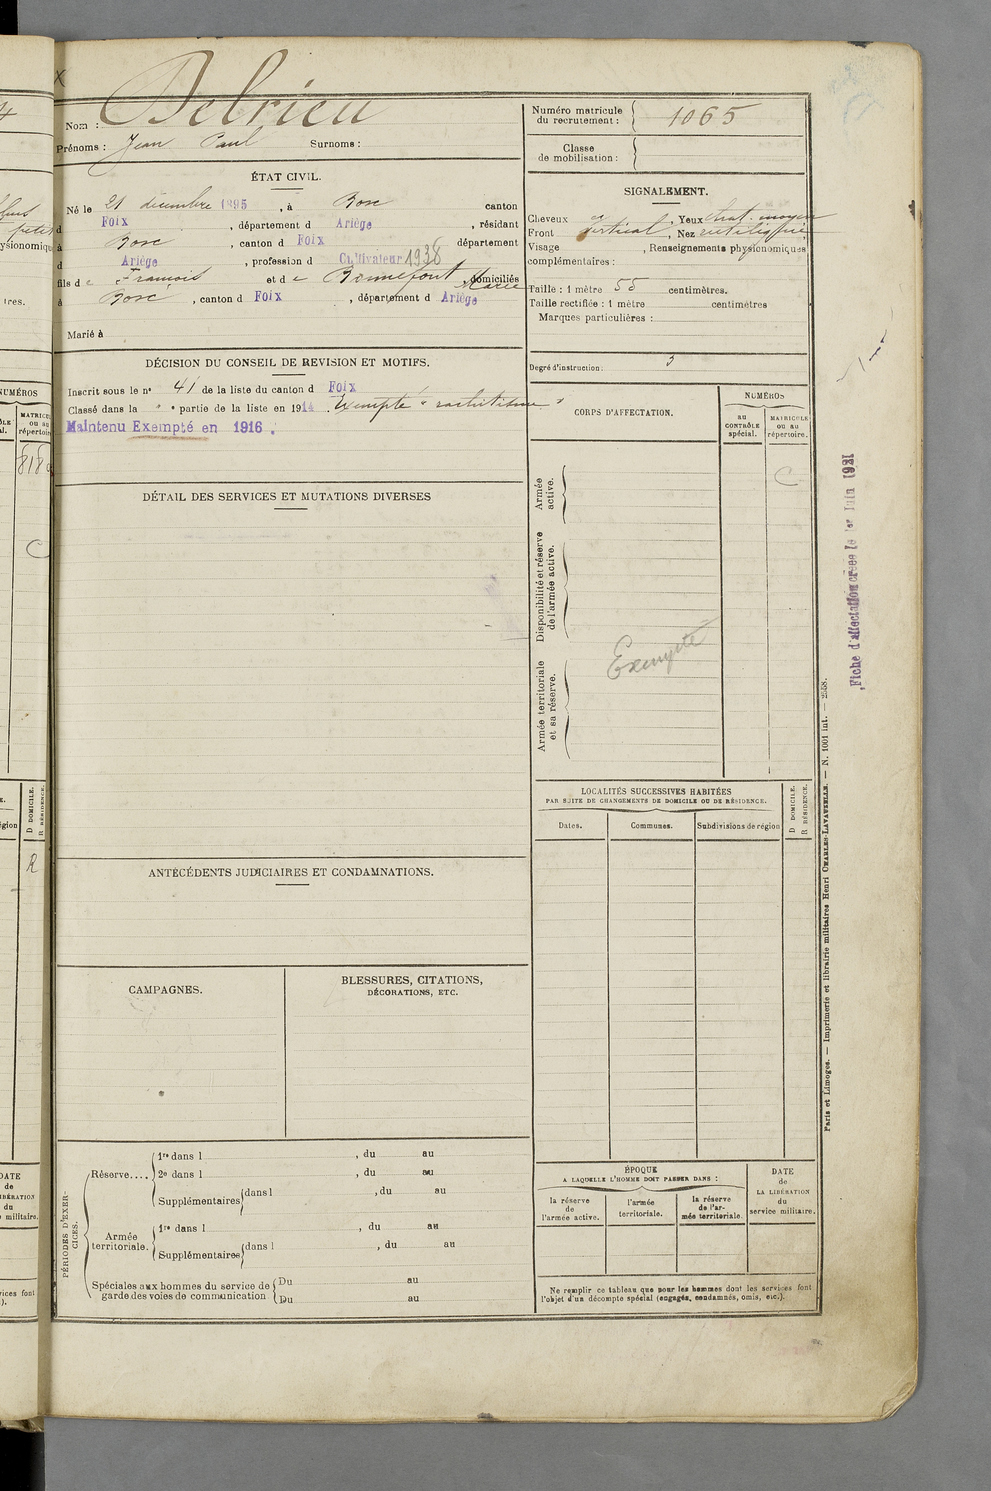 Nom : Delrieu
Prénoms : Jean Paul Surnoms :
Numéro matricule du recrutement : 1065
Classe de mobilisation :
ÉTAT CIVIL.
Né le 21 décembre 1895, à Bosc canton
d Foix, département d Ariège, résidant
à Bosc, canton d Foix département
d Ariège, profession d Cultivateur 1938
fils de François et de Bonnefont Marie, domiciliés
à Bosc, canton d Foix, département d Ariège
Marié à
SIGNALEMENT.
Cheveux , Yeux chat. moyen
Front vertical, Nez rectiligne
Visage , Renseignements physionomiques
complémentaires :
Taille : 1 mètre 55 centimètres.
Taille rectifiée : 1 mètre centimètres
Marques particulières :
Degré d'instruction : 3
DÉCISION DU CONSEIL DE REVISION ET MOTIFS.
Inscrit sous le n° 41 de la liste du canton d Foix
Classé dans la " " partie de la liste en 1914. Exempté "rachitisme"
Maintenu Exempté en 1916.
DÉTAIL DES SERVICES ET MUTATIONS DIVERSES
CORPS D'AFFECTATION.
NUMÉROS
au CONTRÔLE spécial.
MATRICULE ou au répertoire.
C
Armée active.
Disponibilité et réserve de l'armée active.
Armée territoriale et sa réserve.
Exempté
Fiche d'affectation créée le 1er Juin 1921
LOCALITÉS SUCCESSIVES HABITÉES
PAR SUITE DE CHANGEMENTS DE DOMICILE OU DE RÉSIDENCE.
Dates. Communes. Subdivisions de région
D DOMICILE.
R RÉSIDENCE.
ANTÉCÉDENTS JUDICIAIRES ET CONDAMNATIONS.
CAMPAGNES.
BLESSURES, CITATIONS,
DÉCORATIONS, ETC.
PÉRIODES D'EXERCICES.
Réserve.... 1re dans l , du au
2e dans l , du au
Supplémentaires dans l , du au
Armée territoriale. 1re dans l , du au
Supplémentaires dans l , du au
Spéciales aux hommes du service de garde des voies de communication Du au
Du au
ÉPOQUE
A LAQUELLE L'HOMME DOIT PASSER DANS :
la réserve de l'armée active.
l'armée territoriale.
la réserve de l'armée territoriale.
DATE de LA LIBÉRATION du service militaire.
Ne remplir ce tableau que pour les hommes dont les services font
l'objet d'un décompte spécial (engagés, condamnés, omis, etc.).
Paris et Limoges. — Imprimerie et librairie militaires Henri CHARLES-LAVAUZELLE. — N. 1001 int. — 2558.